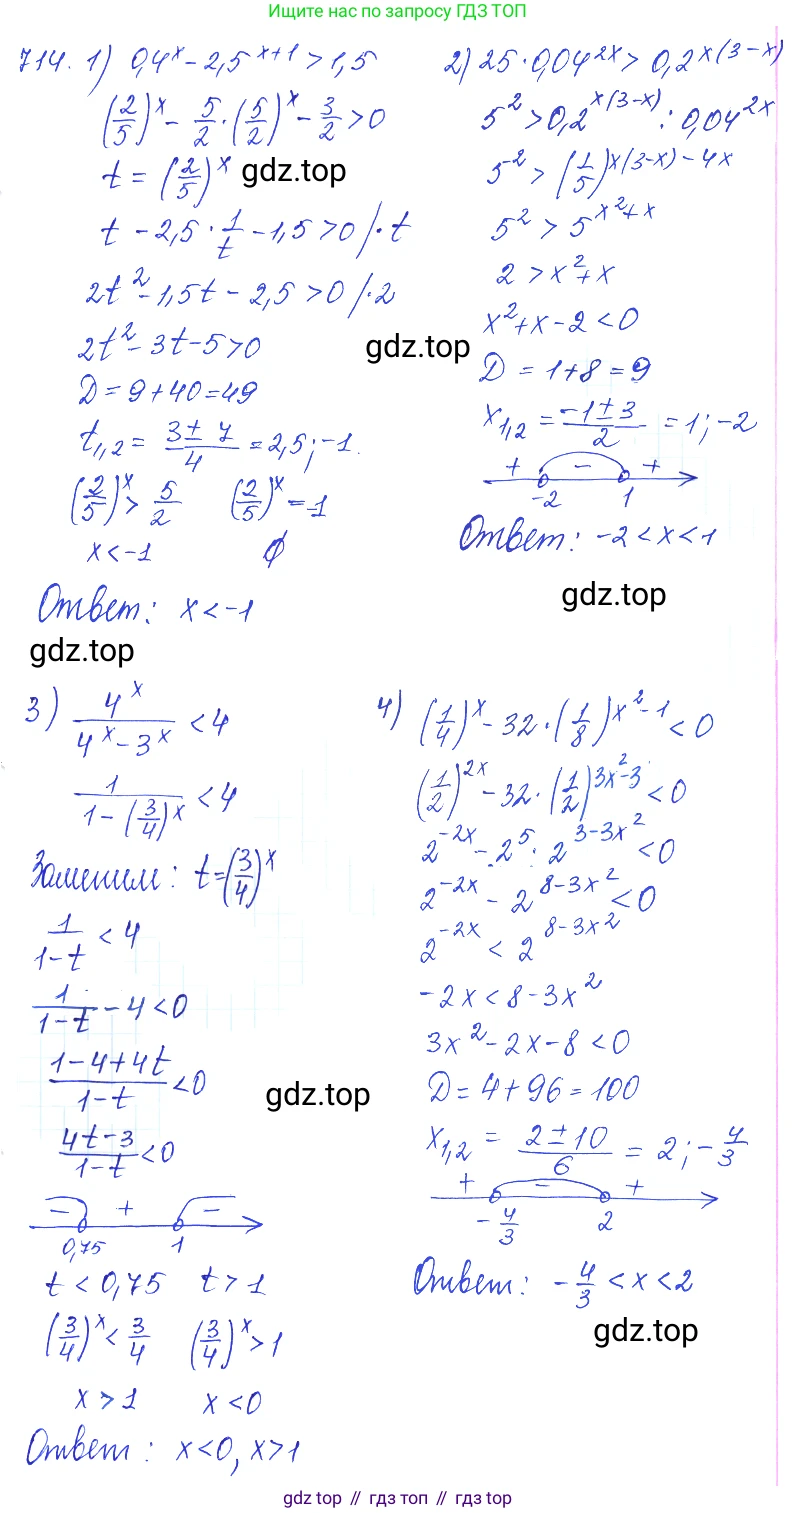 Ищите нас по запросу ГДЗ ТОП
714. 1) 0,4^x - 2,5^{x+1} > 1,5
(2/5)^x - 5/2 · (5/2)^x - 3/2 > 0
t = (2/5)^x gdz.top
t - 2,5 · 1/t - 1,5 > 0 / · t
2t^2 - 1,5t - 2,5 > 0 / · 2
2t^2 - 3t - 5 > 0
gdz.top
D = 9 + 40 = 49
t_{1,2} = (3 ± 7)/4 = 2,5; -1.
(2/5)^x > 5/2 (2/5)^x = -1
x < -1 ∅
Ответ: x < -1
gdz.top
2) 25 · 0,04^{2x} > 0,2^{x(3-x)}
5^2 > 0,2^{x(3-x)} : 0,04^{2x}
5^2 > (1/5)^{x(3-x)-4x}
5^2 > 5^{x^2+x}
2 > x^2 + x
x^2 + x - 2 < 0
D = 1 + 8 = 9
x_{1,2} = (-1 ± 3)/2 = 1; -2
+ - +
-2 1
Ответ: -2 < x < 1
gdz.top
3) 4^x/(4^x - 3^x) < 4
1/(1 - (3/4)^x) < 4
Заменим: t = (3/4)^x
1/(1-t) < 4
1/(1-t) - 4 < 0
(1-4+4t)/(1-t) < 0
gdz.top
(4t-3)/(1-t) < 0
- + -
0,75 1
t < 0,75 t > 1
(3/4)^x < 3/4 (3/4)^x > 1
x > 1 x < 0
Ответ: x < 0, x > 1
4) (1/4)^x - 32 · (1/8)^{x^2-1} < 0
(1/2)^{2x} - 32 · (1/2)^{3x^2-3} < 0
2^{-2x} - 2^5 · 2^{3-3x^2} < 0
2^{-2x} - 2^{8-3x^2} < 0
2^{-2x} < 2^{8-3x^2}
-2x < 8 - 3x^2
3x^2 - 2x - 8 < 0
D = 4 + 96 = 100
x_{1,2} = (2 ± 10)/6 = 2; -4/3
+ - +
-4/3 2
Ответ: -4/3 < x < 2
gdz.top
gdz top // гдз топ // gdz top